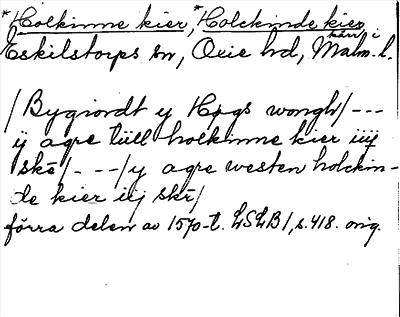 *Holkinne kier, *Holckinde kier
kärr i
Eskilstorps sn, Oxie hd, Malm. l.
/Bygiordt y Høgs wongh/ - - -
ij agre tüll holkinne kier iiij
skē/ - - -/y agre westen holckin-
de kier iij skē/
förra delen av 1570-t. LSLB I, s. 418. orig.